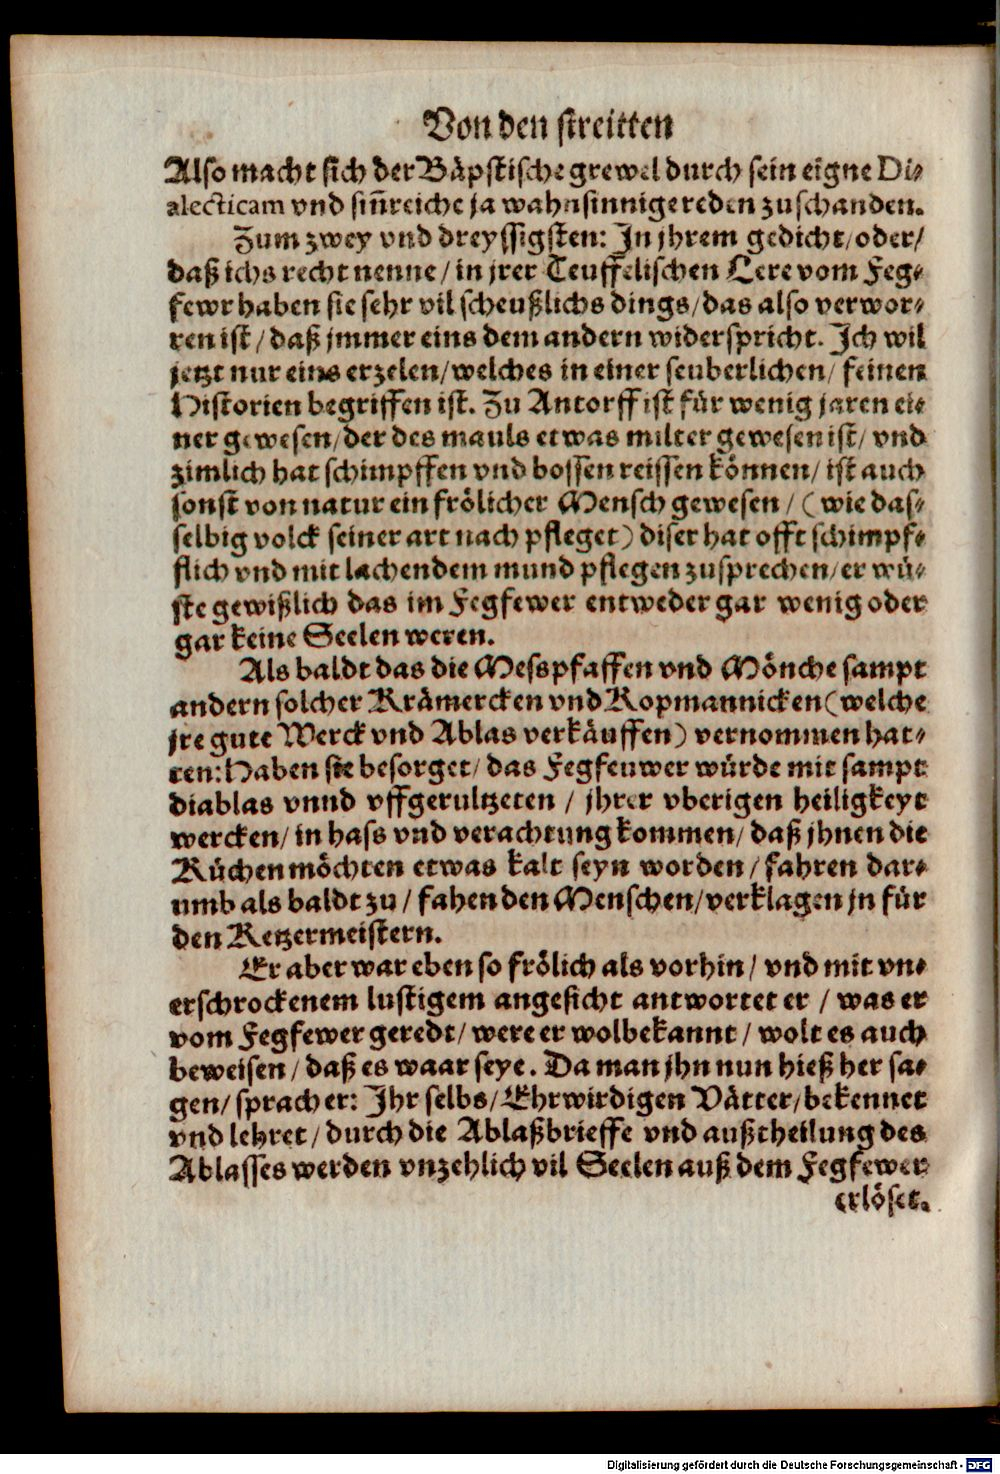 Von den streitten
Also macht sich der Bäpstische grewel durch sein eigne Di⸗
alecticam vnd siñreiche ja wahnsinnige reden zuschanden.
Zum zwey vnd dreyssigsten: In jhrem gedicht/ oder/
daß ichs recht nenne/ in jrer Teuffelischen Lere vom Feg⸗
fewr haben sie sehr vil scheußlichs dings/ das also verwor⸗
ren ist/ daß jmmer eins dem andern widerspricht. Ich wil
jetzt nur eins erzelen/ welches in einer seuberlichen/ feinen
Historien begriffen ist. Zu Antorff ist für wenig jaren ei⸗
ner gewesen/ der des mauls etwas milter gewesen ist/ vnd
zimlich hat schimpffen vnd bossen reissen können/ ist auch
sonst von natur ein frölicher Mensch gewesen/ (wie das⸗
selbig volck seiner art nach pfleget) diser hat offt schimpf⸗
flich vnd mit lachendem mund pflegen zusprechen/ er wü⸗
ste gewißlich das im Fegfewer entweder gar wenig oder
gar keine Seelen weren.
Als baldt das die Messpfaffen vnd Mönche sampt
andern solcher Krämercken vnd Kopmannicken (welche
jre gute Werck vnd Ablas verkäuffen) vernommen hat⸗
ten: Haben sie besorget/ das Fegfeuwer würde mit sampt
diablas vnnd vffgerultzeten / jhrer vberigen heiligkeyt
wercken/ in hass vnd verachtung kommen/ daß jhnen die
Küchen möchten etwas kalt seyn worden/ fahren dar⸗
umb als baldt zu/ fahen den Menschen/ verklagen jn für
den Ketzermeistern.
Er aber war eben so frölich als vorhin/ vnd mit vn⸗
erschrockenem lustigem angesicht antwortet er / was er
vom Fegfewer geredt/ were er wolbekannt/ wolt es auch
beweisen/ daß es waar seye. Da man jhn nun hieß her sa⸗
gen/ sprach er: Ihr selbs/ Ehrwirdigen Vätter/ bekennet
vnd lehret/ durch die Ablaßbrieffe vnd außtheilung des
Ablasses werden vnzehlich vil Seelen auß dem Fegfewer
erlöset.
Digitalisierung gefördert durch die Deutsche Forschungsgemeinschaft - DFG